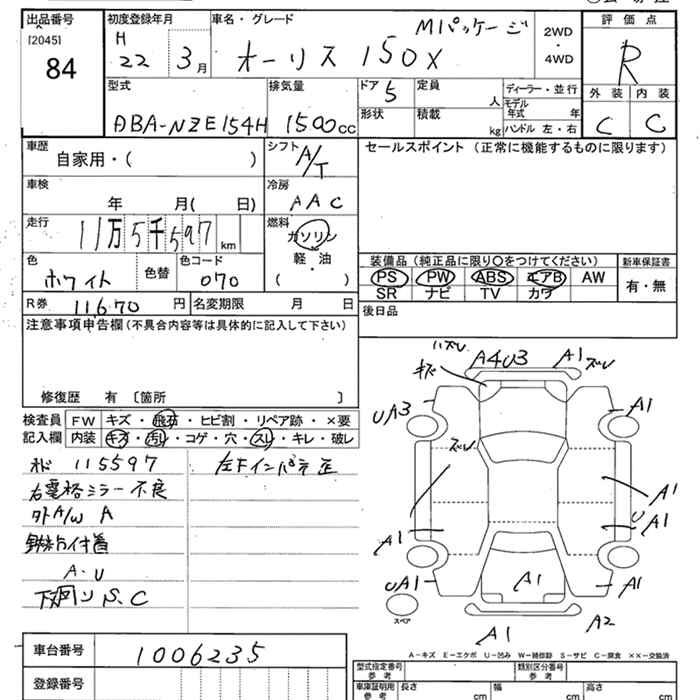 出品番号
[2045]
84
初度登録年月
H
22 3月
車名・グレード
Mパッケージ
オーリス 150X
2WD
・
4WD
評価点
R
外装 内装
C C
型式
DBA-NZE154H
排気量
1500cc
ドア 5
形状
定員 人
積載 kg
ディーラー・並行
モデル年式 年
ハンドル 左・右
車歴
自家用・( )
シフト A/T
車検
年 月( 日)
冷房
AAC
走行
11万5千597 km
燃料
ガソリン
軽・油
( )
色
ホワイト
色替
色コード
070
R券 11670 円
名変期限 月 日
セールスポイント (正常に機能するものに限ります)
装備品 (純正品に限り○をつけてください)
PS PW ABS エアB AW
SR ナビ TV カワ
新車保証書
有・無
後日品
注意事項申告欄 (不具合内容等は具体的に記入して下さい)
修復歴 有 〔箇所 〕
検査員
記入欄
FW キズ・飛石・ヒビ割・リペア跡・×要
内装 キズ・汚レ・コゲ・穴・スレ・キレ・破レ
115597
左Fインパネ歪
右電格ミラー不良
外A/W A
付着
A・U
下廻りS.C
ハズレ
キズ
A4U3
A1
ズレ
UA3
A1
ズレ
A1
A1
U
A1
UA1
A1
A1
スペア
A1
A2
A-キズ E-エクボ U-凹み W-補修跡 S-サビ C-腐食 ××-交換済
車台番号
1006235
登録番号
型式指定番号
参考
類別区分番号
参考
車庫証明用
参考
長さ cm
幅 cm
高さ cm